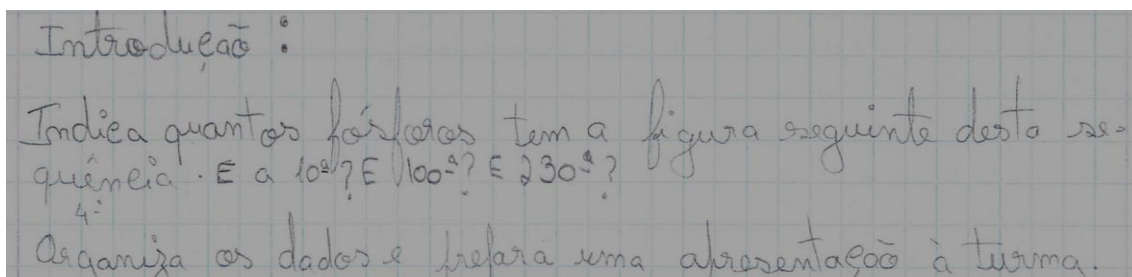 Introdução :
Indica quantos fósforos tem a figura seguinte desta se-
quência. E a 10ª? E 100ª? E 230ª?
4ª
Organiza os dados e prepara uma apresentação à turma.